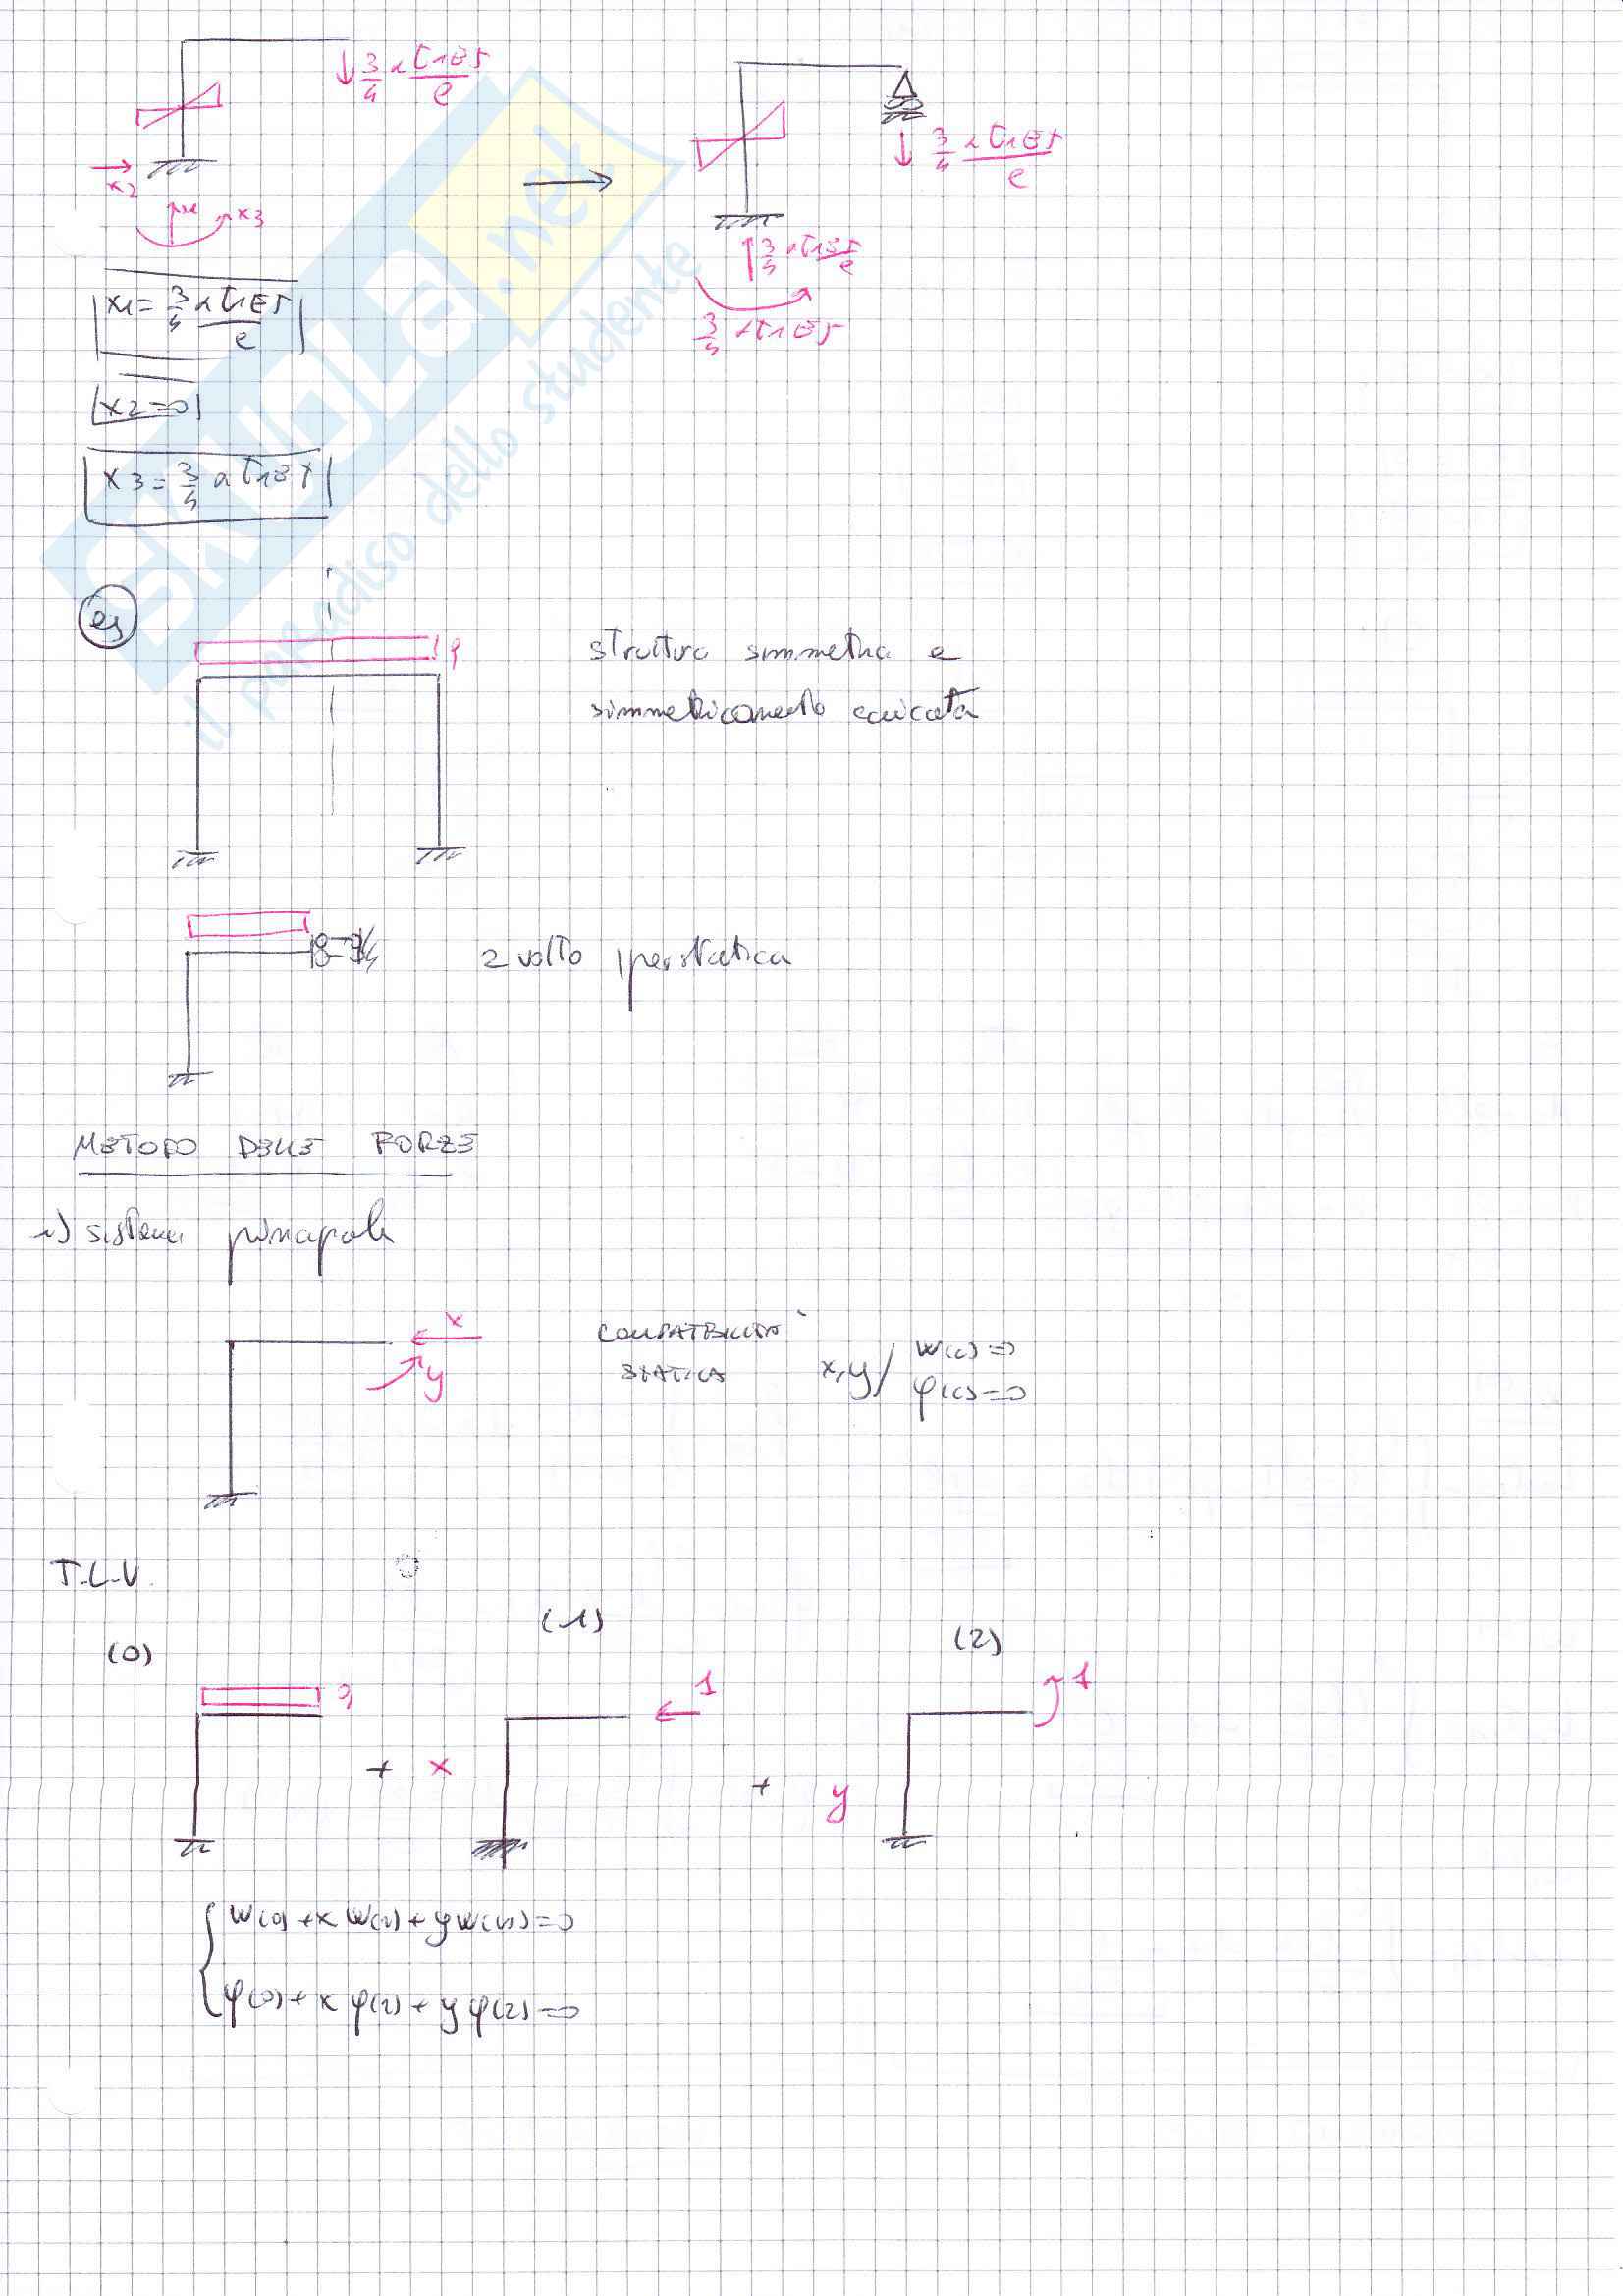 ↓ 3/4 α t1 EJ / l
x2
x3
→
↓ 3/4 α t1 EJ / l
3/4 α t1 EJ / l
3/4 α t1 EJ
x1 = 3/4 α t1 EJ / l
x2 = 0
x3 = 3/4 α t1 EJ
SKUOLA.net
il paradiso dello studente
es
q
struttura simmetrica e
simmetricamente caricata
2 volte iperstatica
METODO DELLE FORZE
1) sistema principale
x
y
COMPATIBILITÀ
STATICA
x, y / w(c) = 0
φ(c) = 0
T.L.V.
(0) (1) (2)
q 1 1
+ x + y
w(0) + x w(1) + y w(2) = 0
φ(0) + x φ(1) + y φ(2) = 0